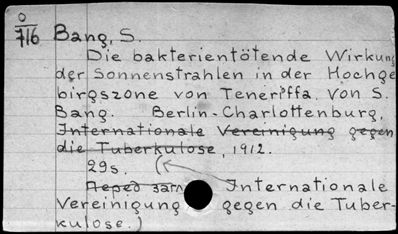 0
716 Bang, S.
Die bakterientötende Wirkung
der Sonnenstrahlen in der Hochge
birgszone von Teneriffa. Von S.
Bang. Berlin-Charlottenburg,
Internationale Vereinigung gegen
die Tuberkulose, 1912.
29s. (
Перед загл Internationale
Vereinigung gegen die Tuber-
kulose.)